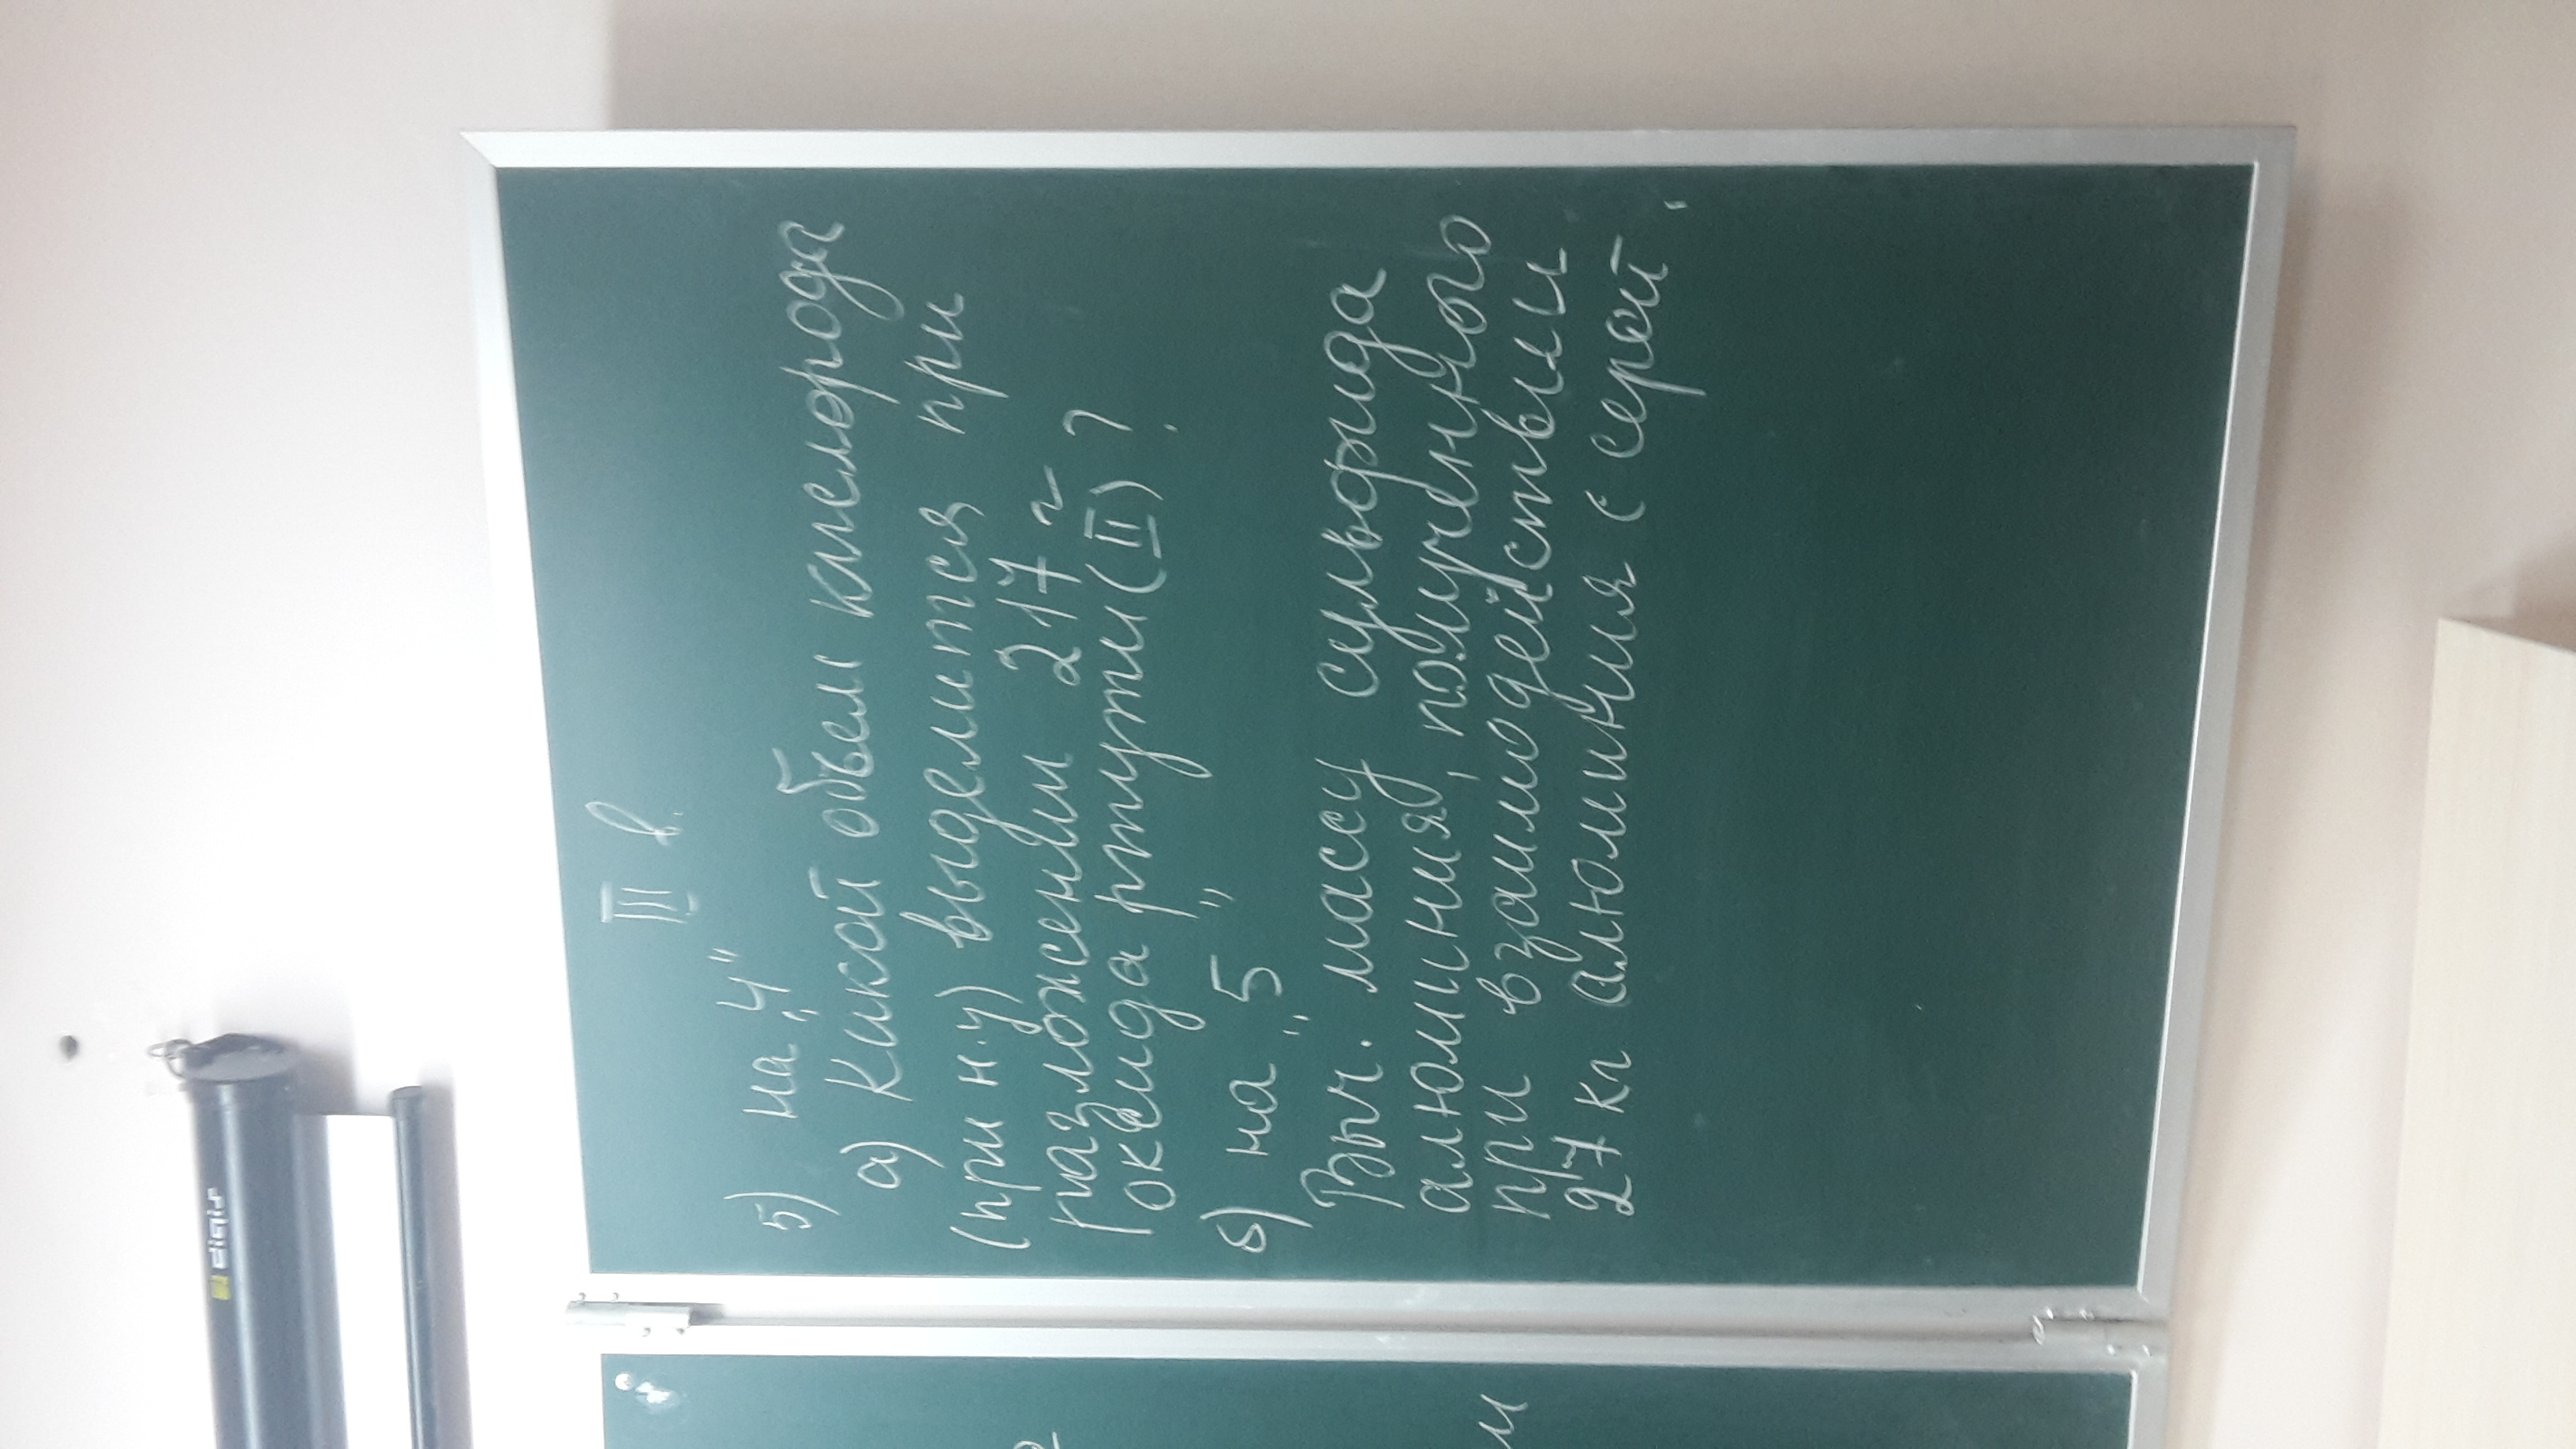 III в.
5) на „4"
а) Какой объем кислорода
(при н.у) выделится при
разложении 217 г
оксида ртути (II)?
б) на „5"
Выч. массу сульфида
алюминия, полученного
при взаимодействии
27 кг алюминия с серой
digis
м